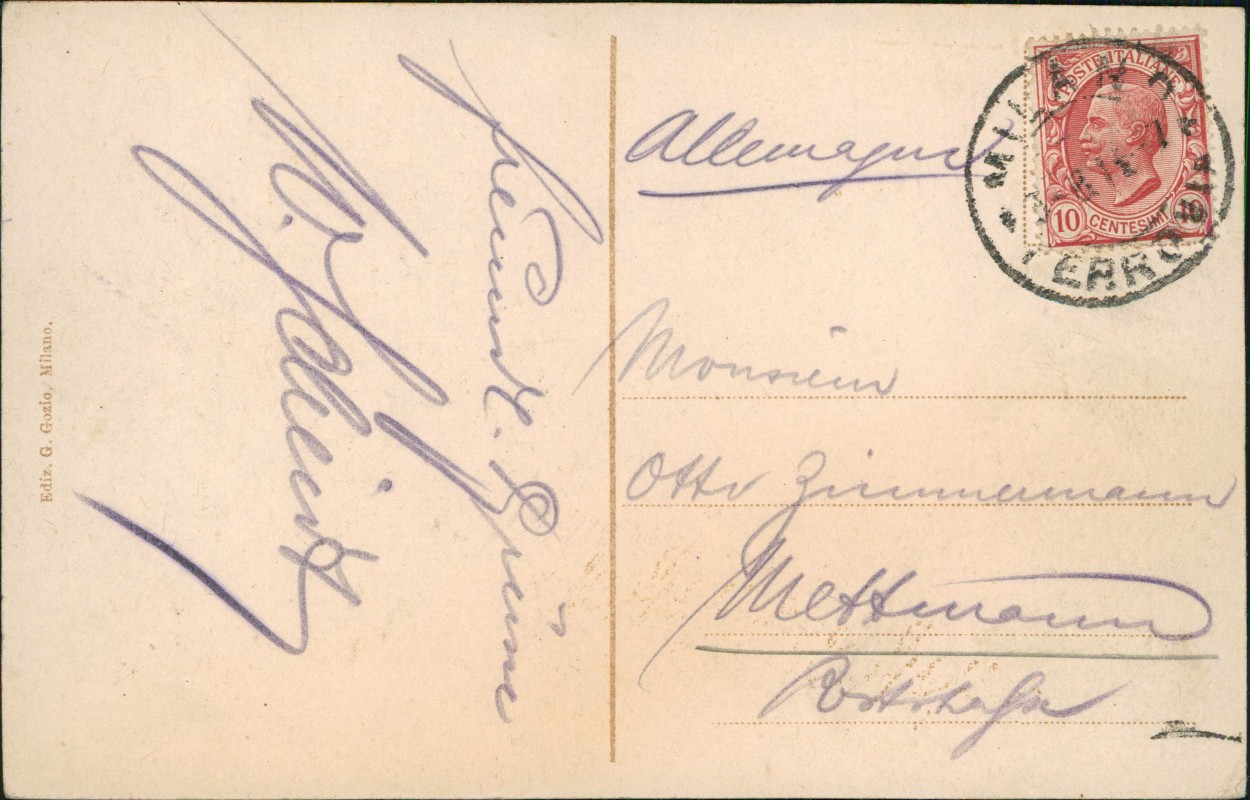 Freundl. Grüsse
W.
Ediz. G. Gozio, Milano.
Allemagne
POSTE ITALIANE
10 CENTESIMI 10
MILANO
FERROVIA
Monsieur
Otto Zimmermann
Mettmann